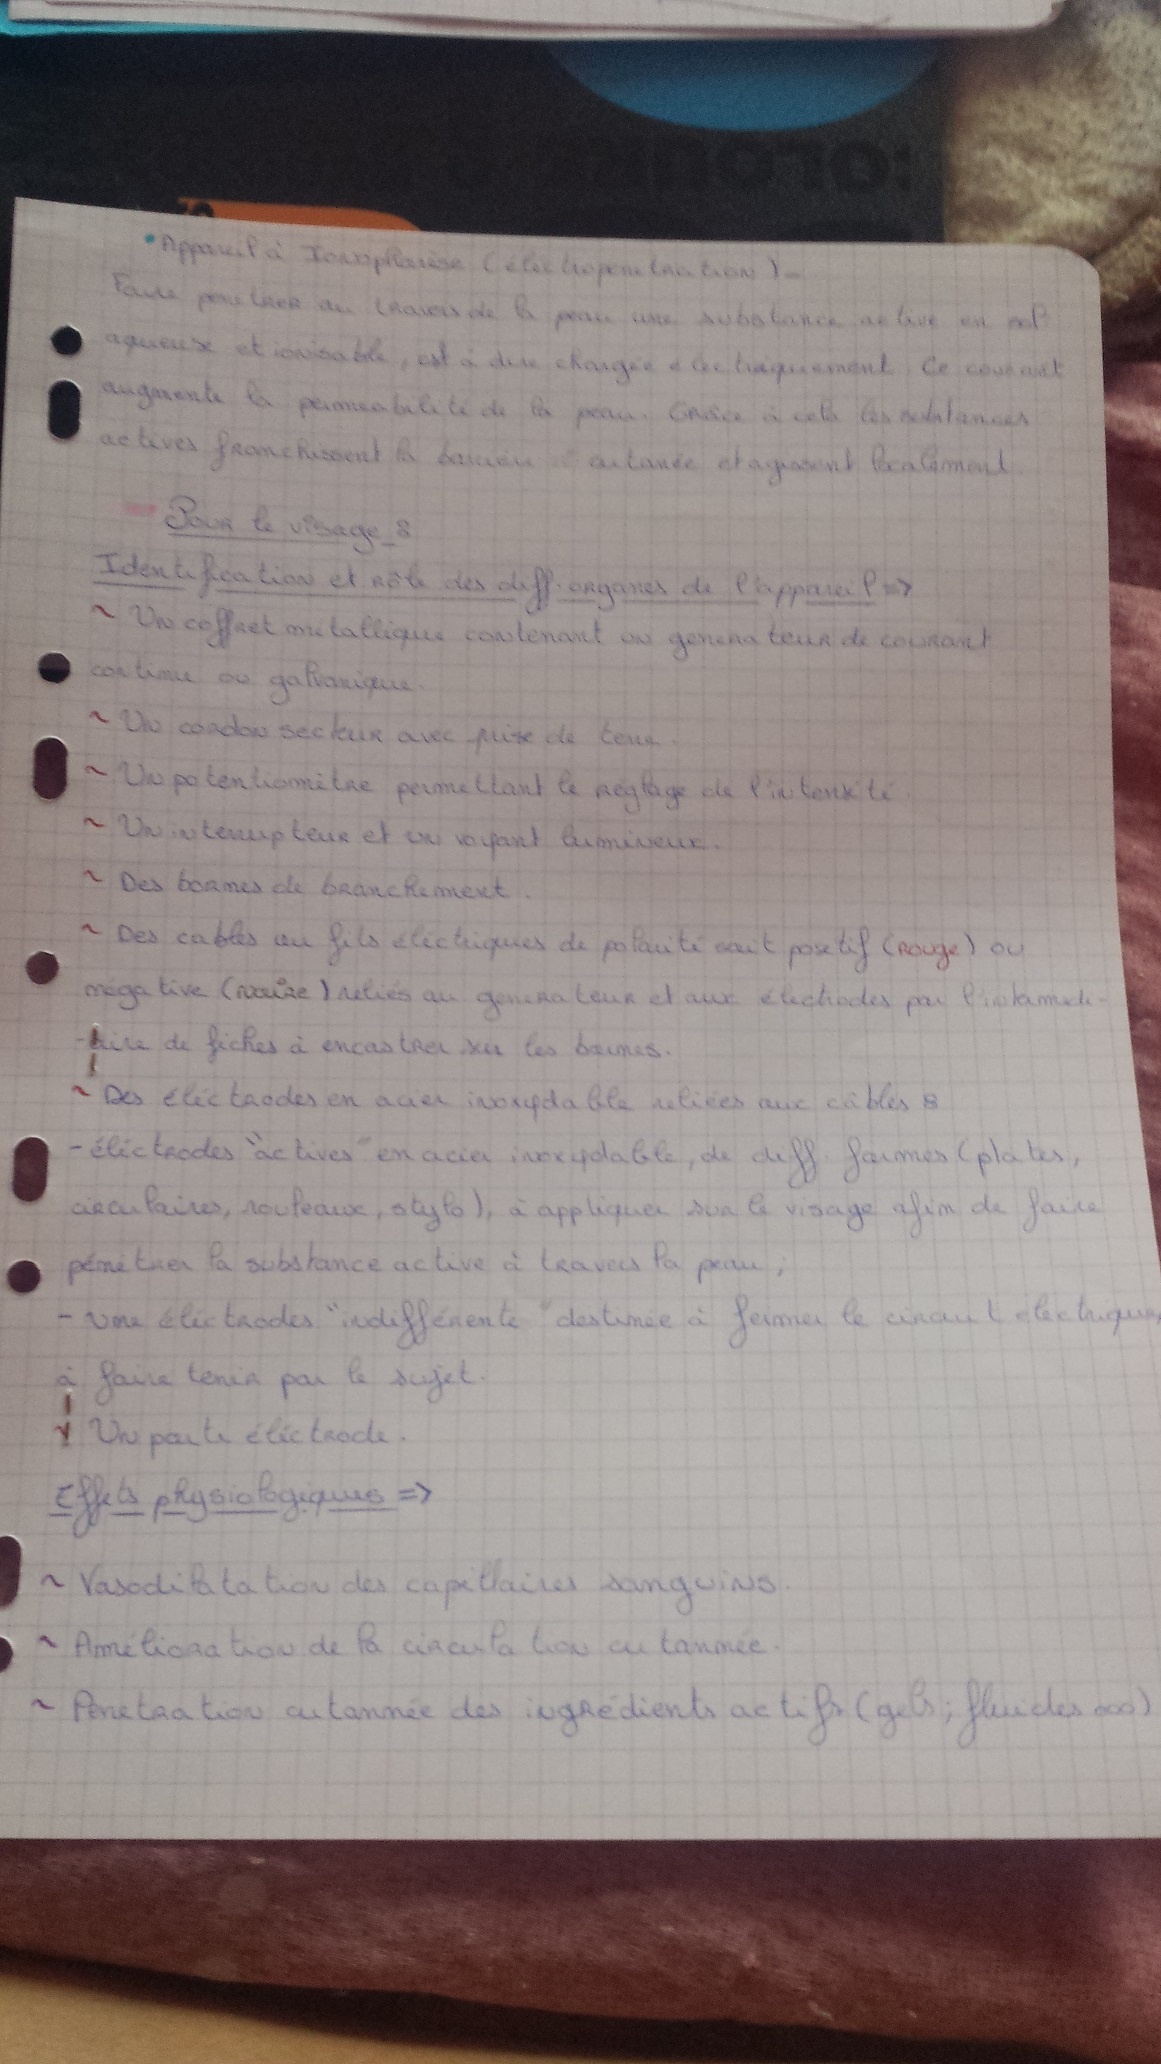 • Appareil à Ionophorèse (éléctropenetration)_
Faire penetrer au travers de la peau une substance active en sol°
aqueuse et ionisable, est à dire chargée electriquement. Ce courant
augmente la permeabilité de la peau. Grâce à cela les substances
actives franchissent la barrière cutanée et agissent localement.
Pour le visage_:
Identification et rôle des diff. organes de l'appareil =>
~ Un coffret métallique contenant un generateur de courant
continu ou galvanique.
~ Un cordon secteur avec prise de terre.
~ Un potentiomètre permettant le réglage de l'intensité.
~ Un interrupteur et un voyant lumineux.
~ Des bornes de branchement.
~ Des cables ou fils éléctriques de polarité soit posetif (rouge) ou
négative (noire) reliés au generateur et aux éléctrodes par l'intermedi-
-aire de fiches à encastrer sur les bornes.
~ Des éléctrodes en acier inoxydable reliées aux câbles :
- éléctrodes "actives" en acier inoxydable, de diff. formes (plates,
circulaires, rouleaux, stylo), à appliquer sur le visage afin de faire
pénétrer la substance active à travers la peau ;
- une éléctrodes "indifférente" destinée à fermer le circuit électrique,
à faire tenir par le sujet.
~ Un porte éléctrode.
Effets physiologiques =>
~ Vasodilatation des capillaires sanguins.
~ Amélioration de la circulation cutannée.
~ Penetration cutannée des ingrédients actifs (gels ; fluides ...)